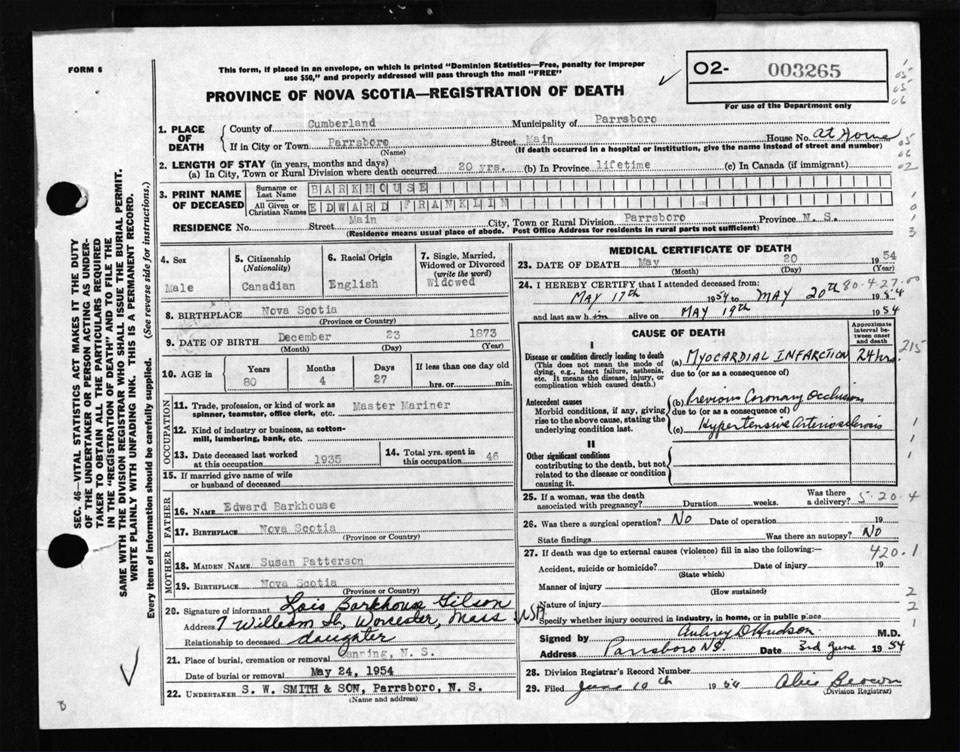 FORM 6
This form, if placed in an envelope, on which is printed "Dominion Statistics—Free, penalty for improper
use $50," and properly addressed will pass through the mail "FREE"
O2- 003265
For use of the Department only
PROVINCE OF NOVA SCOTIA—REGISTRATION OF DEATH
1. PLACE OF DEATH
County of Cumberland Municipality of Parrsboro
If in City or Town Parrsboro Street Main House No. at Home
(Name) (If death occurred in a hospital or institution, give the name instead of street and number)
2. LENGTH OF STAY (in years, months and days)
(a) In City, Town or Rural Division where death occurred 20 yrs. (b) In Province lifetime (c) In Canada (if immigrant)
3. PRINT NAME OF DECEASED
Surname or Last Name BARKHOUSE
All Given or Christian Names EDWARD FRANKLIN
RESIDENCE No. Street Main City, Town or Rural Division Parrsboro Province N. S.
(Residence means usual place of abode. Post Office Address for residents in rural parts not sufficient)
4. Sex Male
5. Citizenship (Nationality) Canadian
6. Racial Origin English
7. Single, Married, Widowed or Divorced (write the word) Widowed
8. BIRTHPLACE Nova Scotia
(Province or Country)
9. DATE OF BIRTH December 23 1873
(Month) (Day) (Year)
10. AGE in Years 80 Months 4 Days 27 If less than one day old hrs. or min.
OCCUPATION
11. Trade, profession, or kind of work as spinner, teamster, office clerk, etc. Master Mariner
12. Kind of industry or business, as cotton-mill, lumbering, bank, etc.
13. Date deceased last worked at this occupation 1935
14. Total yrs. spent in this occupation 46
15. If married give name of wife or husband of deceased
FATHER
16. Name Edward Barkhouse
17. Birthplace Nova Scotia
(Province or Country)
MOTHER
18. MAIDEN NAME Susan Patterson
19. BIRTHPLACE Nova Scotia
(Province or Country)
20. Signature of informant Lois Barkhouse Gilson
Address 7 William St, Worcester, Mass USA
Relationship to deceased daughter
21. Place of burial, cremation or removal Canning, N. S.
Date of burial or removal May 24, 1954
22. UNDERTAKER S. W. SMITH & SON, Parrsboro, N. S.
(Name and address)
MEDICAL CERTIFICATE OF DEATH
23. DATE OF DEATH May 20 1954
(Month) (Day) (Year)
24. I HEREBY CERTIFY that I attended deceased from: 80-4-27-00
MAY 17th 1954 to MAY 20th 1954
and last saw him alive on MAY 19th 1954
CAUSE OF DEATH
Approximate interval between onset and death
I
Disease or condition directly leading to death
(This does not mean the mode of dying, e.g., heart failure, asthenia, etc. It means the disease, injury, or complication which caused death.)
(a) MYOCARDIAL INFARCTION 24 hrs.
due to (or as a consequence of)
Antecedent causes
Morbid conditions, if any, giving rise to the above cause, stating the underlying condition last.
(b) Previous Coronary Occlusion
due to (or as a consequence of)
(c) Hypertensive Arteriosclerosis
II
Other significant conditions
contributing to the death, but not related to the disease or condition causing it.
25. If a woman, was the death associated with pregnancy? Duration weeks. Was there a delivery? 5-20-4
26. Was there a surgical operation? No Date of operation 19
State findings Was there an autopsy? No
27. If death was due to external causes (violence) fill in also the following:— 420.1
Accident, suicide or homicide? Date of injury 19
(State which)
Manner of injury
(How sustained)
Nature of injury
Specify whether injury occurred in industry, in home, or in public place
Signed by Aubrey D Hudson M.D.
Address Parrsboro NS. Date 3rd June 1954
28. Division Registrar's Record Number
29. Filed June 10th 1954 Alice Brown
(Division Registrar)
SEC. 46—VITAL STATISTICS ACT MAKES IT THE DUTY
OF THE UNDERTAKER OR PERSON ACTING AS UNDER-
TAKER TO OBTAIN ALL THE PARTICULARS REQUIRED
IN THE "REGISTRATION OF DEATH" AND TO FILE THE
SAME WITH THE DIVISION REGISTRAR WHO SHALL ISSUE THE BURIAL PERMIT.
WRITE PLAINLY WITH UNFADING INK. THIS IS A PERMANENT RECORD.
Every item of information should be carefully supplied. (See reverse side for instructions.)
215
8